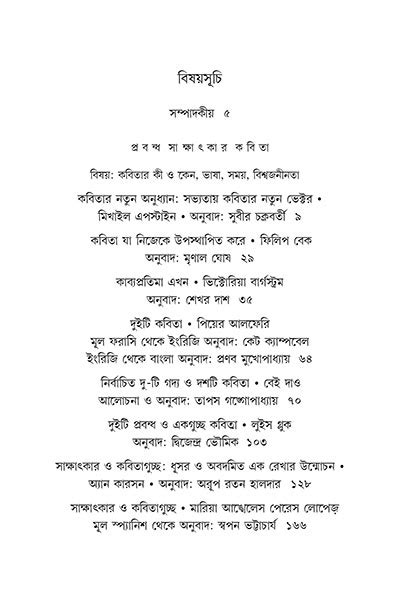 বিষয়সূচি
সম্পাদকীয় ৫
প্র ব ন্ধ সা ক্ষা ৎ কা র ক বি তা
বিষয়: কবিতার কী ও কেন, ভাষা, সময়, বিশ্বজনীনতা
কবিতার নতুন অনুধ্যান: সভ্যতায় কবিতার নতুন ভেক্টর •
মিখাইল এপস্টাইন • অনুবাদ: সুবীর চক্রবর্তী ৯
কবিতা যা নিজেকে উপস্থাপিত করে • ফিলিপ বেক
অনুবাদ: মৃণাল ঘোষ ২৯
কাব্যপ্রতিমা এখন • ভিক্টোরিয়া বার্গস্ট্রম
অনুবাদ: শেখর দাশ ৩৫
দুইটি কবিতা • পিয়ের আলফেরি
মূল ফরাসি থেকে ইংরিজি অনুবাদ: কেট ক্যাম্পবেল
ইংরিজি থেকে বাংলা অনুবাদ: প্রণব মুখোপাধ্যায় ৬৪
নির্বাচিত দু-টি গদ্য ও দশটি কবিতা • বেই দাও
আলোচনা ও অনুবাদ: তাপস গঙ্গোপাধ্যায় ৭০
দুইটি প্রবন্ধ ও একগুচ্ছ কবিতা • লুইস গ্লুক
অনুবাদ: দ্বিজেন্দ্র ভৌমিক ১০৩
সাক্ষাৎকার ও কবিতাগুচ্ছ: ধূসর ও অবদমিত এক রেখার উন্মোচন •
অ্যান কারসন • অনুবাদ: অরূপ রতন হালদার ১২৮
সাক্ষাৎকার ও কবিতাগুচ্ছ • মারিয়া আঞ্খেলেস পেরেস লোপেজ়
মূল স্প্যানিশ থেকে অনুবাদ: স্বপন ভট্টাচার্য ১৬৬